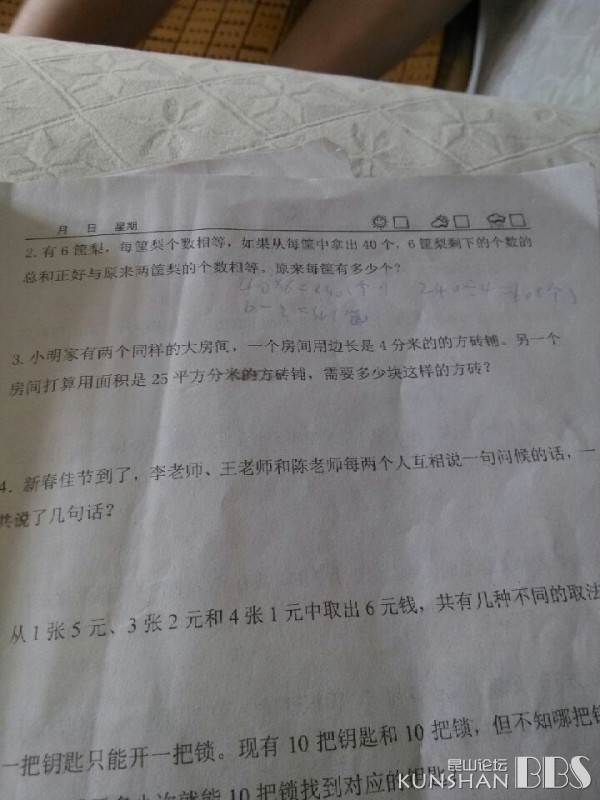 月 日 星期
2. 有6筐梨，每筐梨个数相等，如果从每筐中拿出40个，6筐梨剩下的个数的
总和正好与原来两筐梨的个数相等。原来每筐有多少个？
3. 小明家有两个同样的大房间，一个房间用边长是4分米的的方砖铺。另一个
房间打算用面积是25平方分米的方砖铺，需要多少块这样的方砖？
4. 新春佳节到了，李老师、王老师和陈老师每两个人互相说一句问候的话，一
共说了几句话？
从1张5元、3张2元和4张1元中取出6元钱，共有几种不同的取法
一把钥匙只能开一把锁。现有10把钥匙和10把锁，但不知哪把钥
就能10把锁找到对应的钥匙
昆山论坛
KUNSHAN BBS